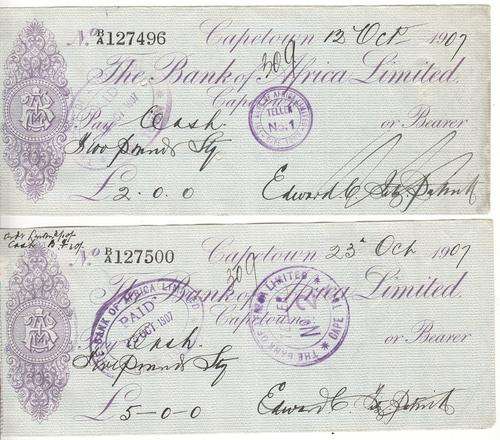 No B/A 127496 Capetown 12 Oct 1907
309
The Bank of Africa Limited.
Capetown
Pay Cash or Bearer
TELLER
No. 1
Two Pounds Stg
£ 2.0.0 Edward C.
Cash
No B/A 127500 Capetown 23d Oct 1907
309
The Bank of Africa Limited.
Capetown
THE BANK OF AFRICA LIMITED
PAID
OCT 1907
THE BANK OF AFRICA LIMITED
CAPE TOWN
Cash or Bearer
Pounds Stg
£ 5-0-0 Edward C.